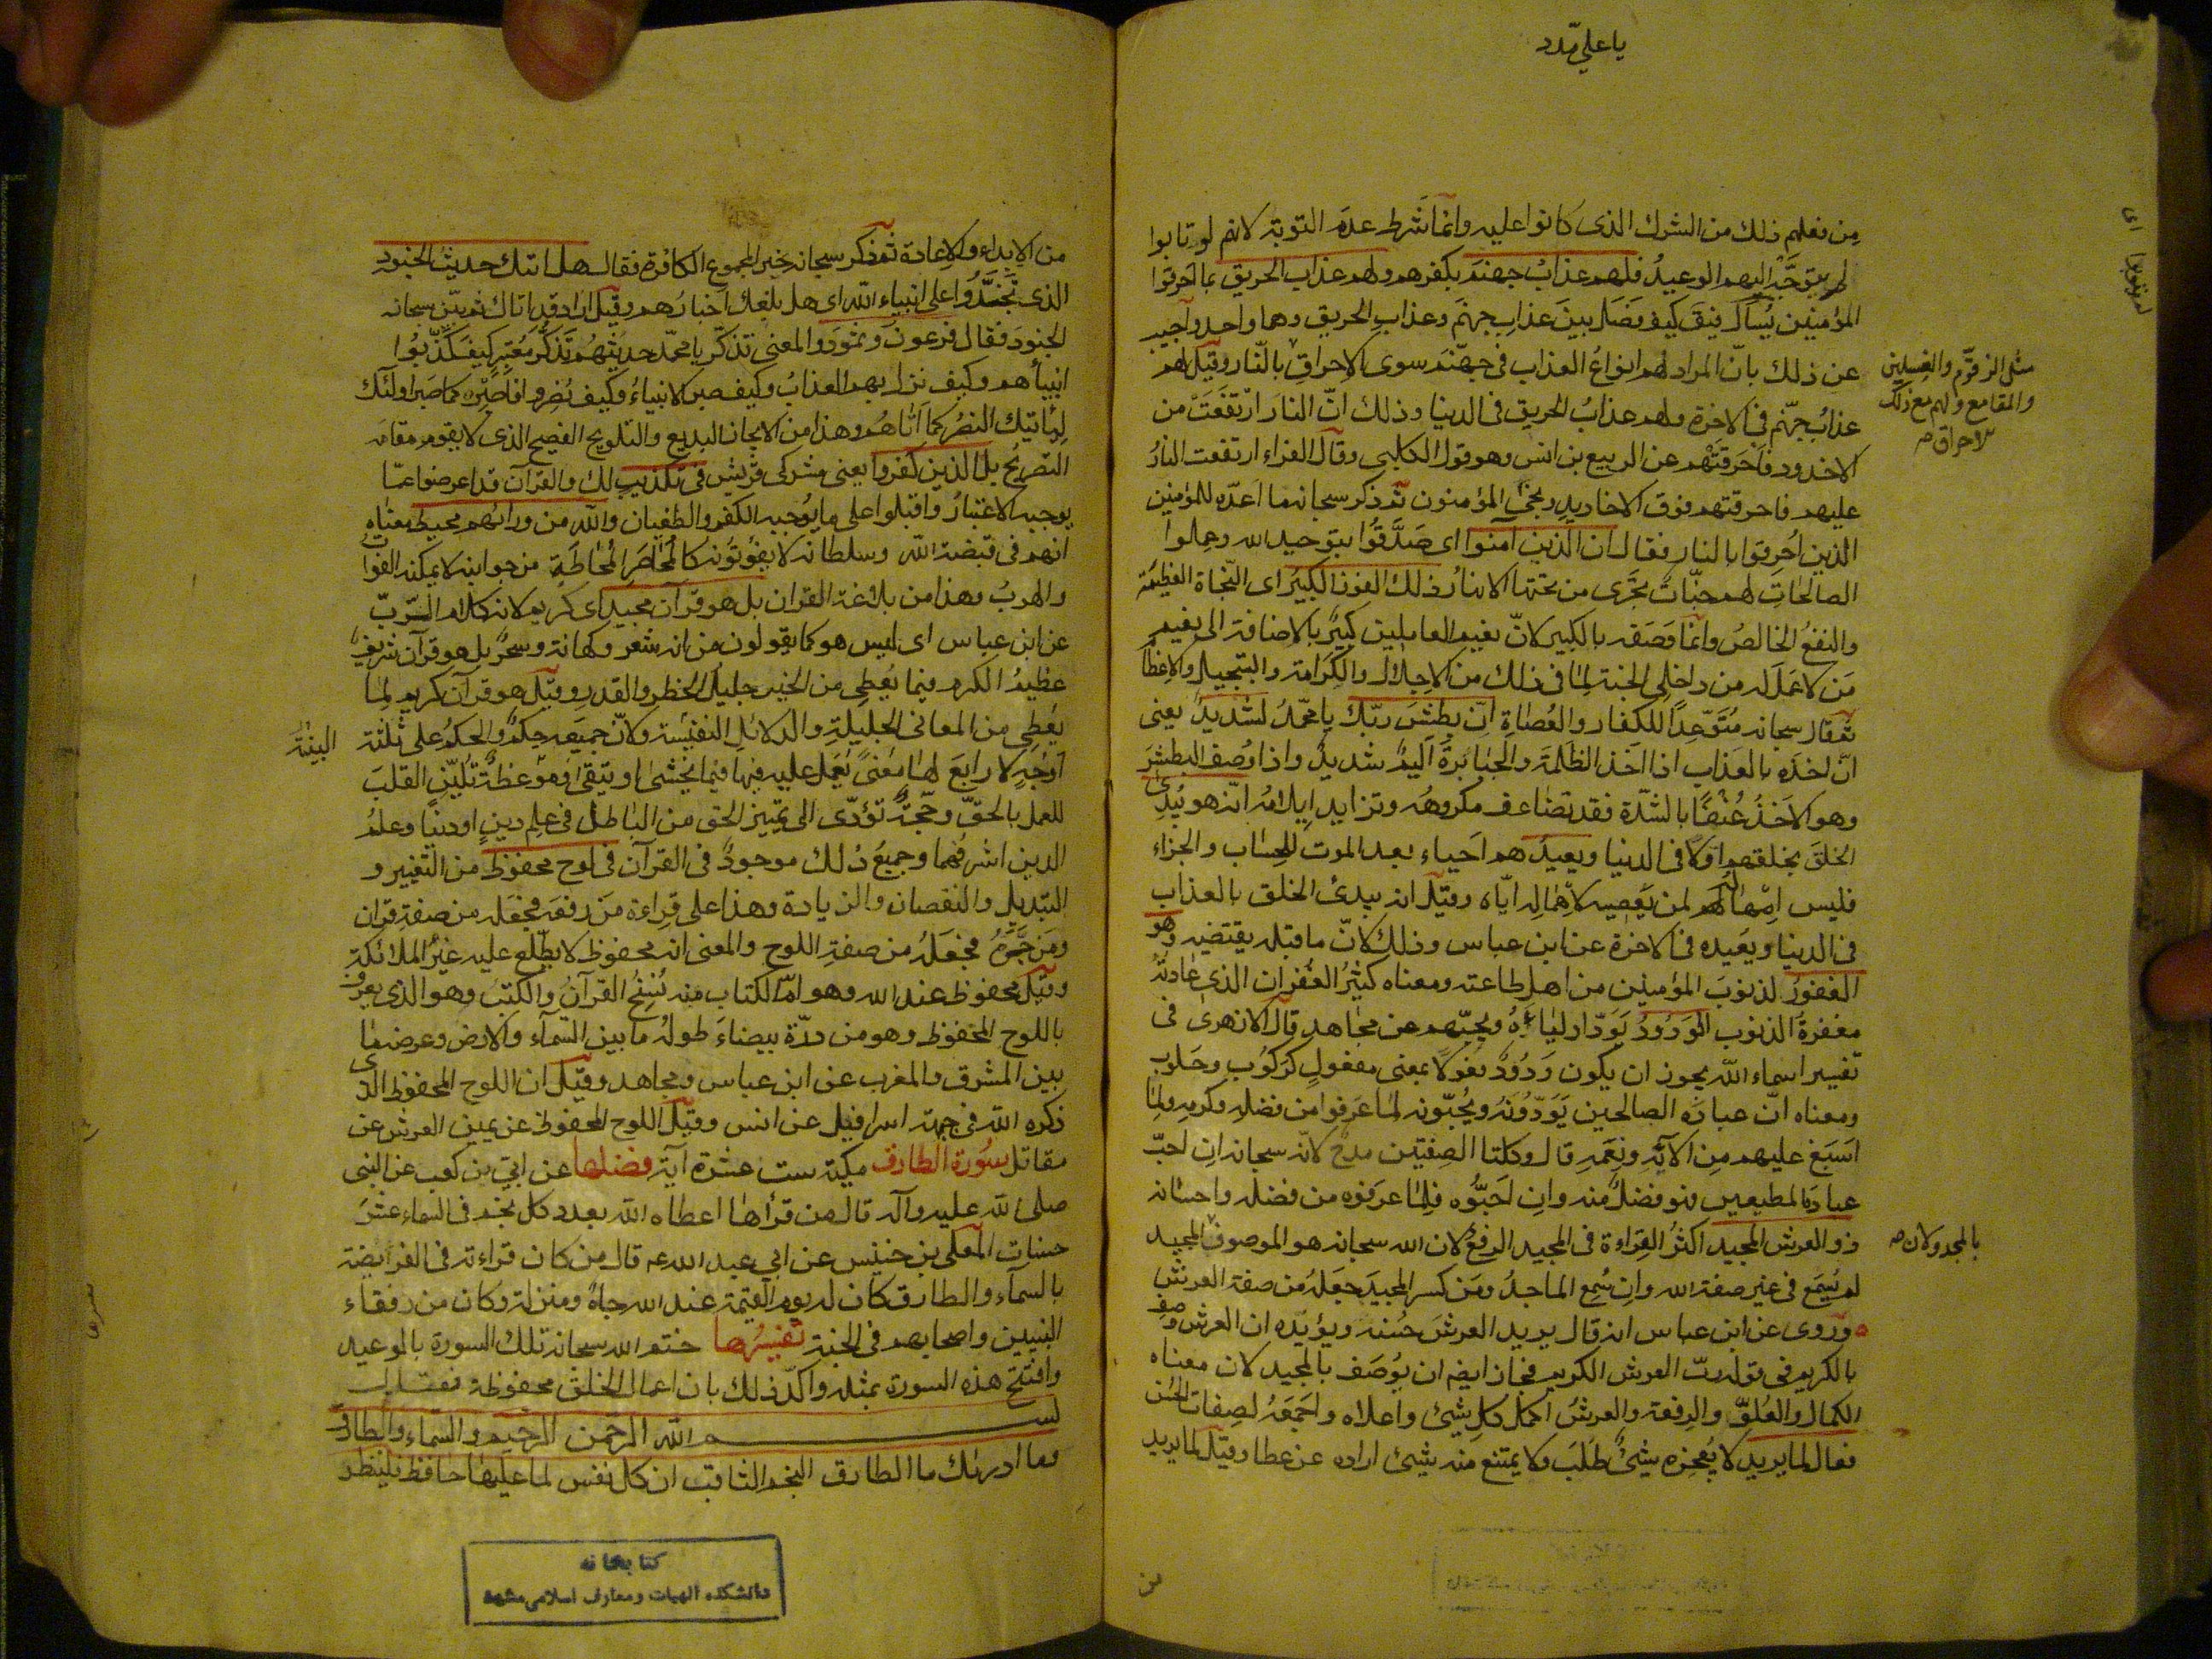 يا علي مدد
من فعلهم ذلك من الشرك الذى كانوا عليه وانما شرط عدم التوبة لانهم لو تابوا
لم يتوجه اليهم الوعيد فلهم عذاب جهنم بكفرهم ولهم عذاب الحريق بما احرقوا
المؤمنين يسأل فيق كيف فصل بين عذاب جهنم وعذاب الحريق وهما واحد واجيب
عن ذلك بانّ المراد لهم انواع العذاب فى جهنّم سوى الاحراق بالنّار وقيل لهم
مثل الزقوم والغسلين
والمقامع ولهم مع ذلك
الاحراق صح
عذاب جهنّم فى الاخرة ولهم عذاب الحريق فى الدنيا وذلك انّ النار ارتفعت من
الاخدود فاحرقتهم عن الربيع بن انس وهو قول الكلبى وقال الفراء ارتفعت النار
عليهم فاحرقتهم فوق الاخاديد ونجى المؤمنون ثم ذكر سبحانه ما اعدّه للمؤمنين
الذين احرقوا بالنار فقال ان الذين آمنوا اى صدّقوا بتوحيد الله وعملوا
الصالحات لهم جنّات تجرى من تحتها الانهار ذلك الفوز الكبير اى النّجاة العظيمة
والنفع الخالص وانما وصفه بالكبير لانّ نعيم العاملين كبير بالاضافة الى نعيم
من لا عمل له من داخلى الجنة لما فى ذلك من الاجلال والكرامة والتبجيل والاعظام
ثم قال سبحانه متوعّدا للكفار والعصاة انّ بطش ربّك يا محمّد لشديد يعنى
انّ اخذه بالعذاب اذا اخذ الظلمة والجبابرة اليم شديد واذا وصف البطش
وهو الاخذ عنفا بالشدّة فقد تضاعف مكروهه وتزايد ايلامه انّه هو يبدئ
الخلق بخلقهم اوّلا فى الدنيا ويعيدهم احياء بعد الموت للحساب والجزاء
فليس امهاله لمن يعصيه لاهماله ايّاه وقيل انه يبدئ الخلق بالعذاب
فى الدنيا ويعيده فى الاخرة عن ابن عباس وذلك لانّ ما قبله يقتضيه وهو
الغفور لذنوب المؤمنين من اهل طاعته ومعناه كثير الغفران الذى عادته
مغفرة الذنوب الودود يودّ اولياءه ويحبّهم عن مجاهد قال الازهرى فى
تفسير اسماء الله يجوز ان يكون ودود فعولا بمعنى مفعول كركوب وحلوب
ومعناه انّ عباده الصالحين يودّونه ويحبّونه لما عرفوا من فضله وكرمه ولما
اسبغ عليهم من الآئه ونعمه قال وكلتا الصفتين مدح لانّه سبحانه ان احبّ
عباده المطيعين فهو فضل منه وان احبّوه فلما عرفوه من فضله واحسانه
ذو العرش المجيد اكثر القراءة فى المجيد الرفع لان الله سبحانه هو الموصوف المجيد
بالمجد ولان صح
لم يسمع فى غير صفة الله وان سمع الماجد ومن كسر المجيد جعله من صفة العرش
وروى عن ابن عباس انه قال يريد العرش حسنه ويؤيّده ان العرش وصف
بالكريم فى قوله ربّ العرش الكريم فجاز ايضا ان يوصف بالمجيد لان معناه
الكمال والعلوّ والرفعة والعرش اكمل كل شئ واعلاه واجمعه لصفات الحسن
فعال لما يريد لا يعجزه شئ طلب ولا يمتنع منه شئ اراده عن عطا وقيل لما يريد
من الابداء والاعادة ثم ذكر سبحانه خبر الجموع الكافرة فقال هل اتيك حديث الجنود
الذى تجنّدوا على انبياء الله اى هل بلغك اخبارهم وقيل اراد قد اتاك ثم بيّن سبحانه
الجنود فقال فرعون وثمود والمعنى تذكّر يا محمّد حديثهم تذكّر معتبر كيف كذّبوا
انبياءهم وكيف نزل بهم العذاب وكيف صبر الانبياء وكيف نصروا فاصبر كما صبر اولئك
ليأتيك النصر كما اتاهم وهذا من الايجاز البديع والتلويح الفصيح الذى لا يقوم مقامه
التصريح بل الذين كفروا يعنى مشركى قريش فى تكذيب لك والقرآن قد اعرضوا عمّا
يوجبه الاعتبار واقبلوا على ما يوجبه الكفر والطغيان والله من ورائهم محيط معناه
انهم فى قبضة الله وسلطانه لا يفوتونه كالمحاصر المحاط به من جوانبه لا يمكنه الفوات
والهرب وهذا من بلاغة القران بل هو قرآن مجيد اى كريم لانه كلام الربّ
عن ابن عباس اى ليس هو كما يقولون من انه شعر وكهانة وسحر بل هو قرآن شريف
عظيم الكرم فيما يعطى من الخير جليل الخطر والقدر وقيل هو قرآن كريم لما
يعطى من المعانى الجليلة والدلائل النفيسة ولانّ جميعه حكم والحكم على ثلثة
البينة
اوجه لا رابع لها معنى يعمل عليه فيها فيما يخشى او يتقى وموعظة تليّن القلب
للعمل بالحقّ وحجّة تؤدّى الى تمييز الحق من الباطل فى علم دين او دنيا وعلم
الدين اشرفهما وجميع ذلك موجود فى القرآن فى لوح محفوظ من التغيير و
التبديل والنقصان والزيادة وهذا على قراءة من رفعه فجعله من صفة قران
ومن جرّه فجعله من صفة اللوح والمعنى انه محفوظ لا يطّلع عليه غير الملائكة
وقيل محفوظ عند الله وهو امّ الكتاب منه نسخ القرآن والكتب وهو الذى يعرف
باللوح المحفوظ وهو من درّة بيضاء طوله ما بين السّمآء والارض وعرضه ما
بين المشرق والمغرب عن ابن عباس ومجاهد وقيل ان اللوح المحفوظ الذى
ذكره الله فى جبهة اسرافيل عن انس وقيل اللوح المحفوظ عن يمين العرش عن
مقاتل سورة الطارق مكية ست عشرة آية فضلها عن ابىّ بن كعب عن النبى
صلى الله عليه وآله قال من قرأها اعطاه الله بعدد كل نجم فى السماء عشر
حسنات المعلى بن خنيس عن ابى عبد الله ع قال من كان قراءته فى الفرايضة
بالسمآء والطارق كان له يوم القيمة عند الله جاه ومنزلة وكان من رفقاء
النبيين واصحابهم فى الجنة تفسيرها ختم الله سبحانه تلك السورة بالوعيد
وافتتح هذه السورة بمثله واكّد ذلك بان اعمال الخلق محفوظة فقال
بسم الله الرحمن الرحيم والسّماء والطارق
وما ادريك ما الطارق النجم الثاقب ان كل نفس لما عليها حافظ فلينظر
كتابخانه
دانشكده الهيات ومعارف اسلامى مشهد